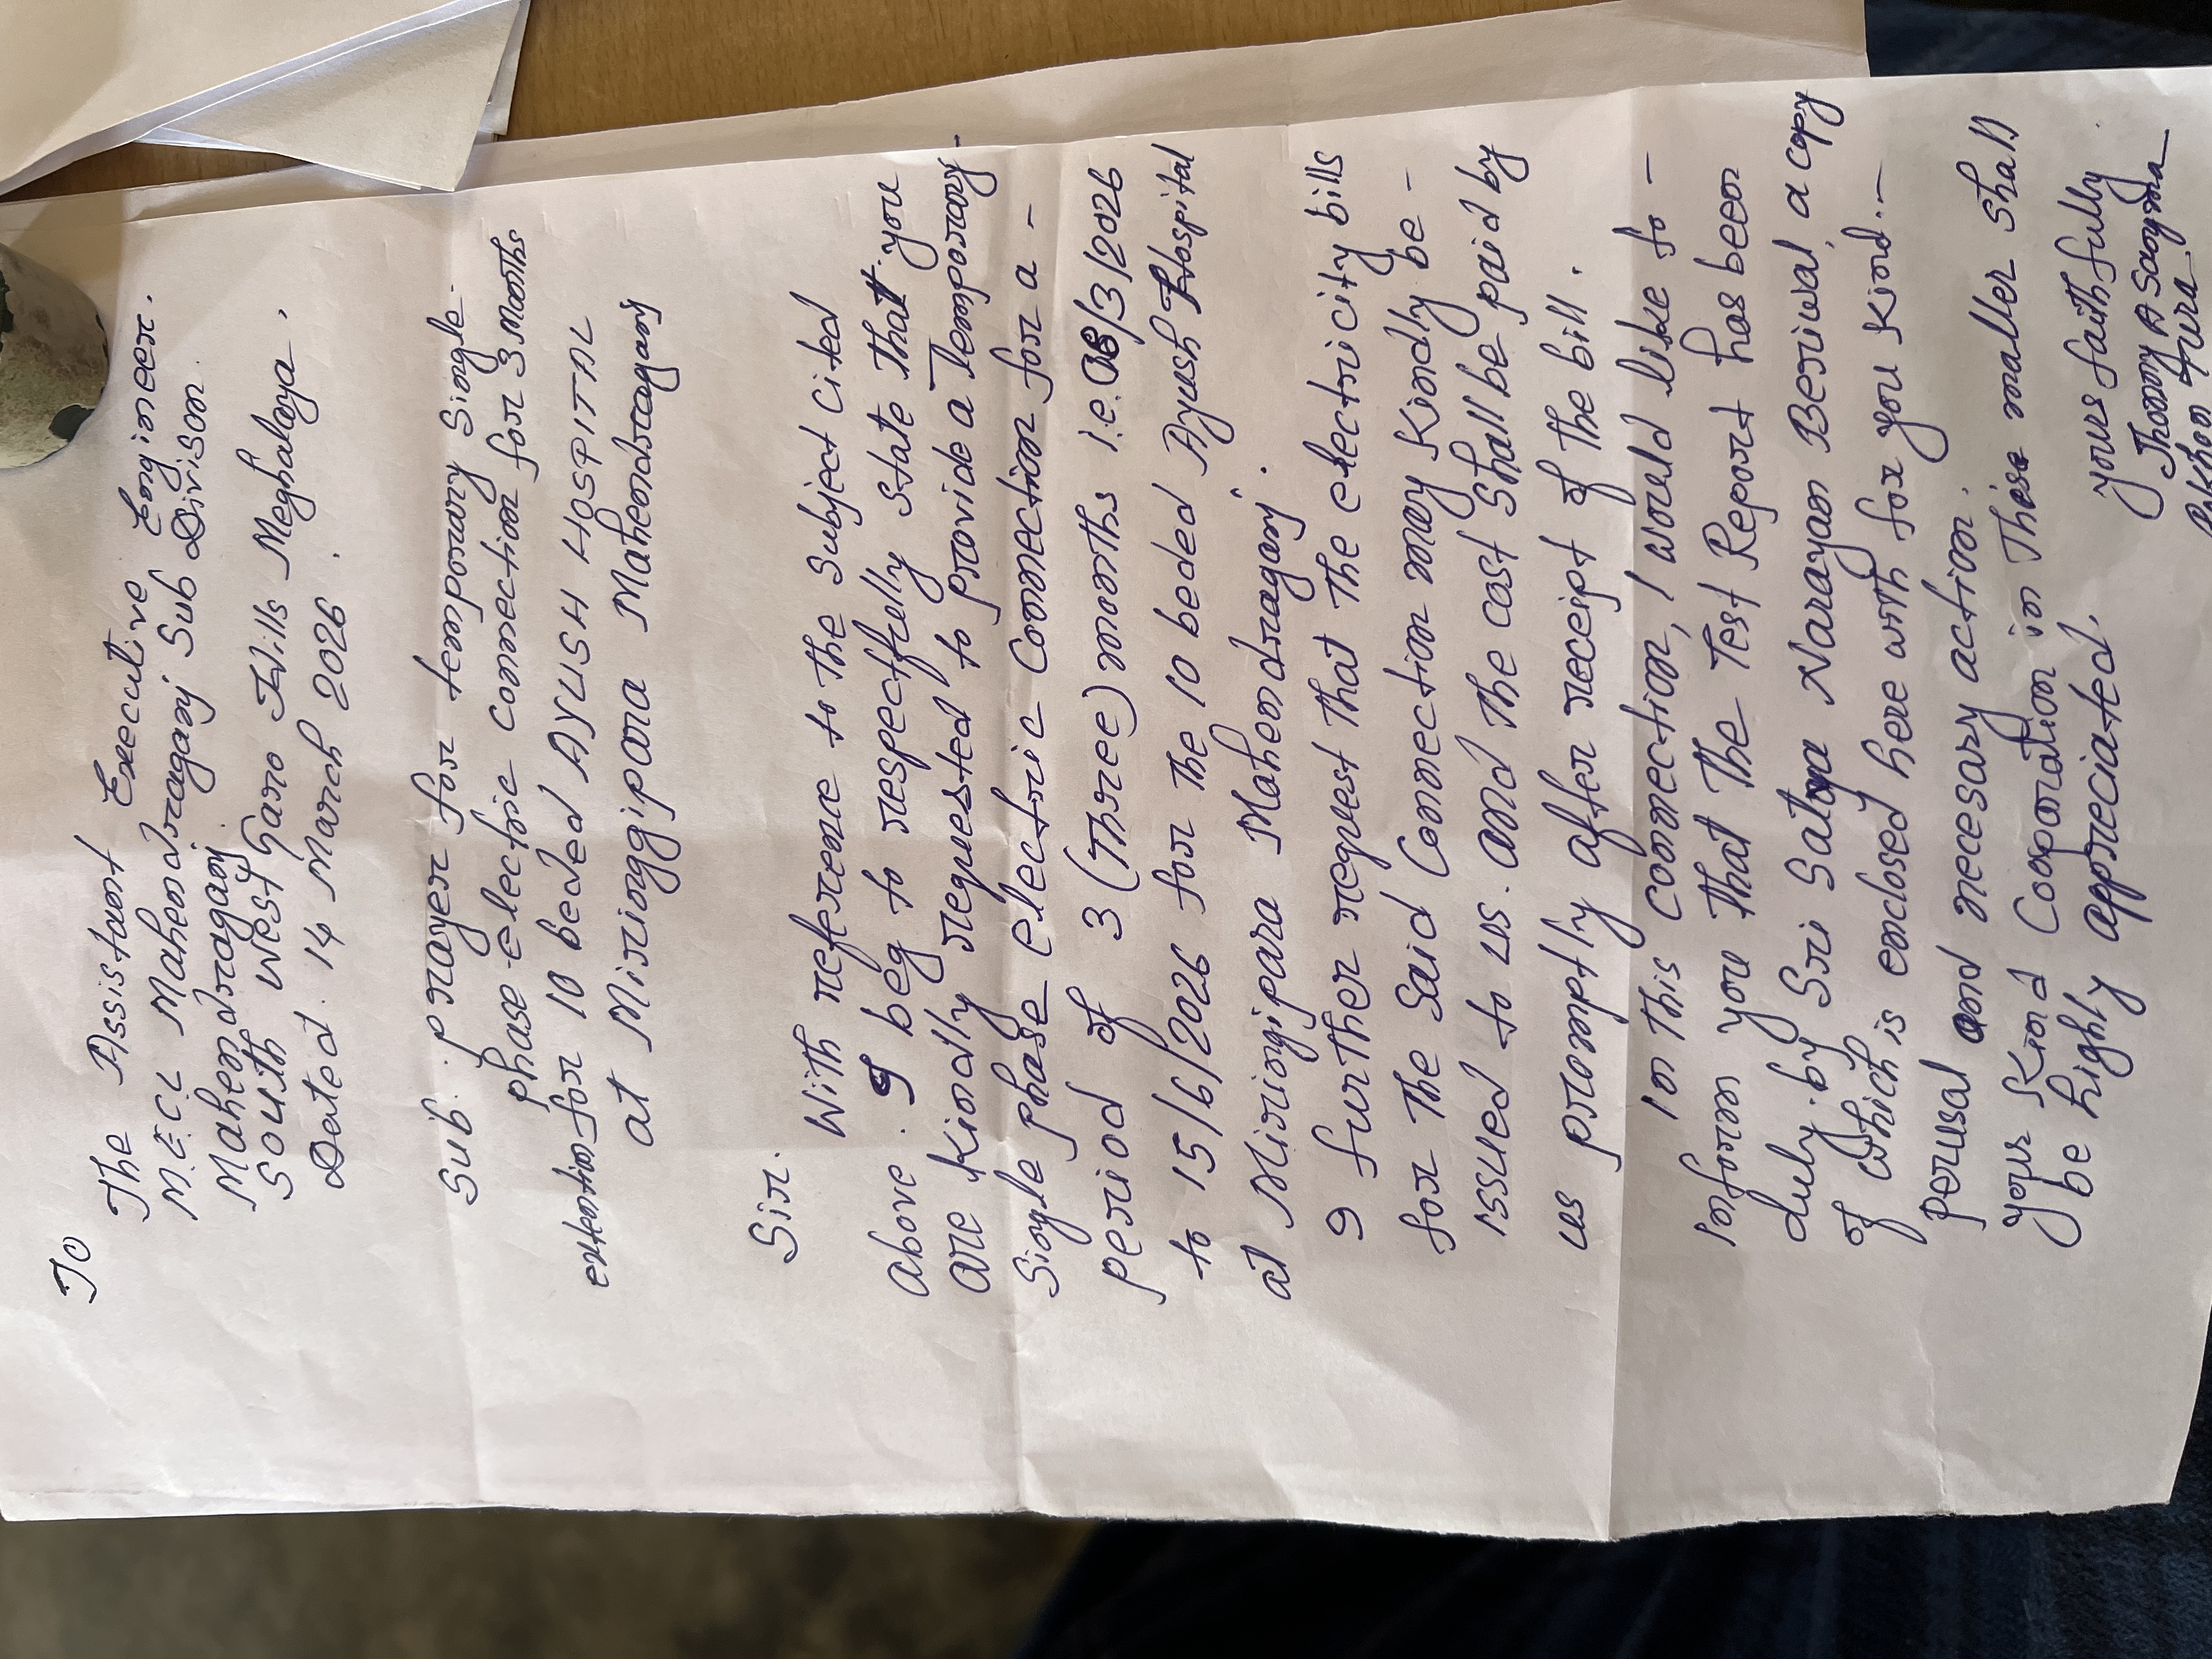 To
The Assistant Executive Engineer.
M.E.C.L Mahendraganj Sub Divison
Mahendraganj.
South West Garo Hills Meghalaya.
Dated. 14 March 2026.
Sub. prayer for temporary Single-
phase electric connection for 3 Months
extention for 10 beded AYUSH HOSPITAL
at Miringgipara Mahendraganj
Sir.
With reference to the Subject cited
above. I beg to respectfully state that you
are kindly requested to provide a Temporary-
Single phase electric Connection for a -
period of 3 (Three) months i.e. /3/2026
to 15/6/2026 for the 10 beded Ayush Hospital
at Miringipara Mahendraganj.
I further request that the electricity bills
for the Said Connection may kindly be -
issued to us. and the cost Shall be paid by
us promptly after receipt of the bill.
In this connection, I would like to -
inform you that the Test Report has been
duly by Sri Satya Narayan Beriwal, a copy
of which is enclosed here with for you kind.-
perusal and necessary action.
your kind Cooparation in This matter shall
be highly appreciated.
yours faithfully
A Sangma